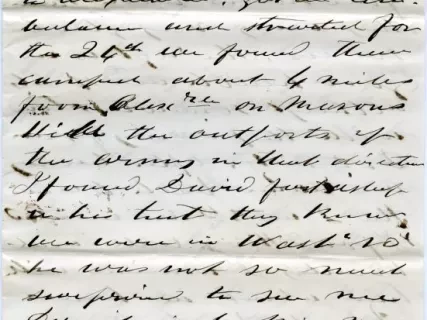 balance and started for
the 24th we found them
camped about 4 miles
from Alexria on Masons
Hill the outposts of
the army in that direction
I found David fast asleep
in his tent they knew
we were in Wash
he was not so much
surprised to see me